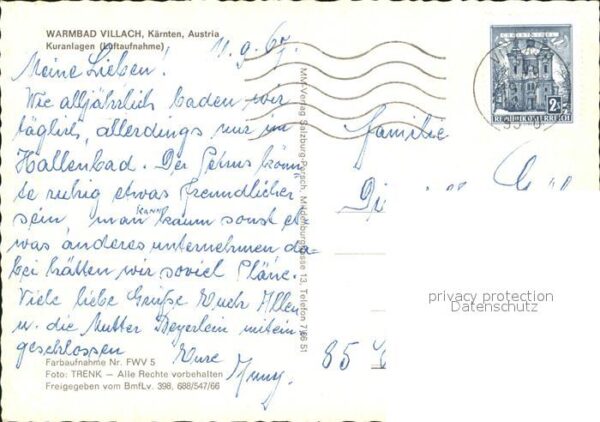 WARMBAD VILLACH, Kärnten, Austria
Kuranlagen (Luftaufnahme)
11.9.67
Meine Lieben!
Wie alljährlich baden wir
täglich, allerdings nur im
Hallenbad. Der Petrus könn-
te ruhig etwas freundlicher
sein, man kann kaum sonst et-
was anderes unternehmen da-
bei hätten wir soviel Pläne.
Viele liebe Grüße Euch Allen
u. die Mutter Beyerlein mitein-
geschlossen Eure
Farbaufnahme Nr. FWV 5
Foto: TRENK — Alle Rechte vorbehalten
Freigegeben vom BmfLv. 398, 688/547/66
MM-Verlag Salzburg-Parsch, Mildenburggasse 13, Telefon 7 66 51
CHRISTKINDL
2S
REPUBLIK ÖSTERREICH
Familie
85
privacy protection
Datenschutz